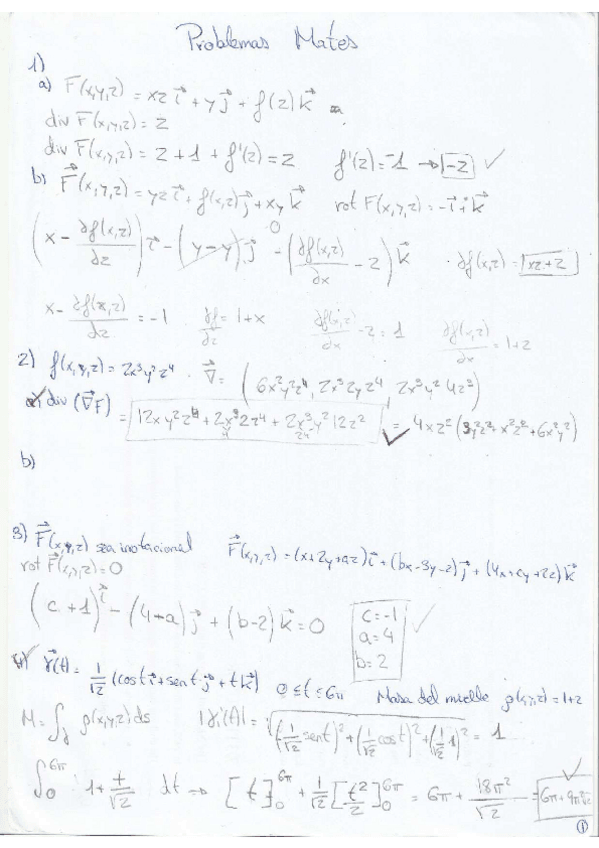 Problemas Mates
1)
a) F(x,y,z) = xz i⃗ + y j⃗ + f(z) k⃗
div F(x,y,z) = z
div F(x,y,z) = z + 1 + f'(z) = z f'(z) = -1 → -z ✓
b) F⃗(x,y,z) = yz i⃗ + f(x,z) j⃗ + xy k⃗ rot F(x,y,z) = -i⃗ + k⃗
(x - ∂f(x,z)/∂z) i⃗ - (y - y) j⃗ - (∂f(x,z)/∂x - z) k⃗ · ∂f(x,z) = xz + z
x - ∂f(x,z)/∂z = -1 ∂f/∂z = 1 + x ∂f(x,z)/∂x - z = 1 ∂f(x,z)/∂x = 1 + z
2) f(x,y,z) = 2x³y²z⁴ · ∇⃗ = (6x²y²z⁴, 2x³2yz⁴, 2x³y²4z³)
a) div (∇⃗F) = 12xy²z⁴ + 2x³2z⁴ + 2x³y²12z² ✓ = 4xz²(3y²z² + x²z² + 6x²y²)
b)
3) F⃗(x,y,z) sea irrotacional F⃗(x,y,z) = (x + 2y + az) i⃗ + (bx - 3y - z) j⃗ + (4x + cy + 2z) k⃗
rot F(x,y,z) = 0
(c + 1) i⃗ - (4 - a) j⃗ + (b - 2) k⃗ = 0 c = -1 ✓
a = 4
b = 2
4) γ⃗(t) = 1/√2 (cos t i⃗ + sen t j⃗ + t k⃗) 0 ≤ t ≤ 6π Masa del muelle ρ(x,y,z) = 1 + z
M = ∫γ ρ(x,y,z) ds |γ'(t)| = √((1/√2 sen t)² + (1/√2 cos t)² + (1/√2 1)²) = 1
∫₀^6π 1 + t/√2 dt → [t]₀^6π + 1/√2 [t²/2]₀^6π = 6π + 18π²/√2 = 6π + 9π²√2 ✓
①